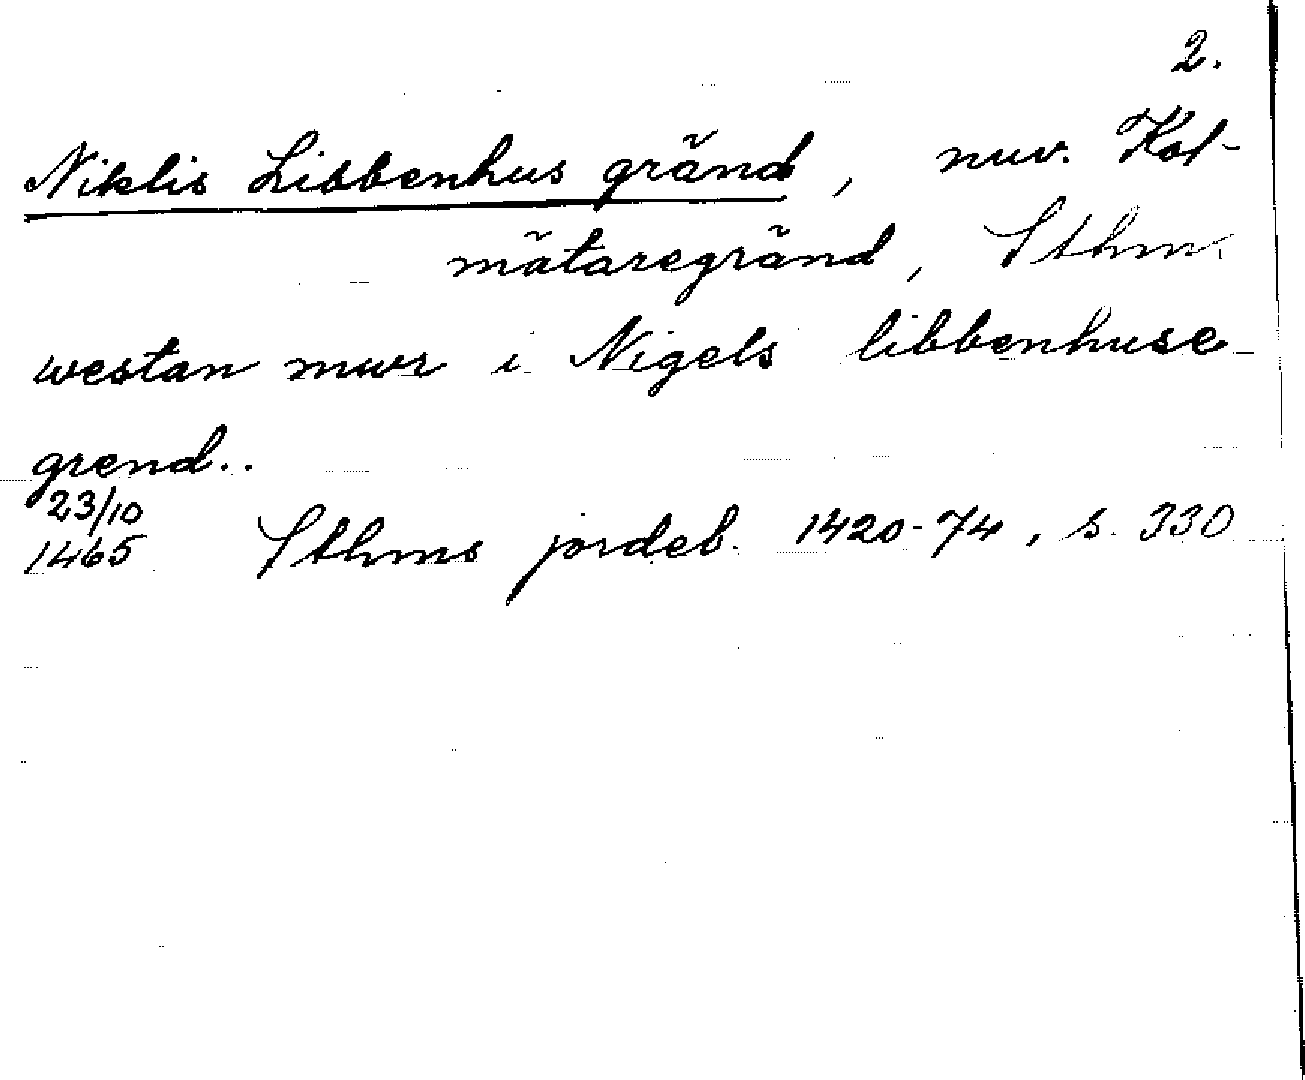 2.
Niklis Libbenhus gränd, nuv. Kol-
mätaregränd, Sthm.
westan mwr i Nigels libbenhuse
grend..
23/10
1465 Sthms jordeb. 1420-74, s. 330